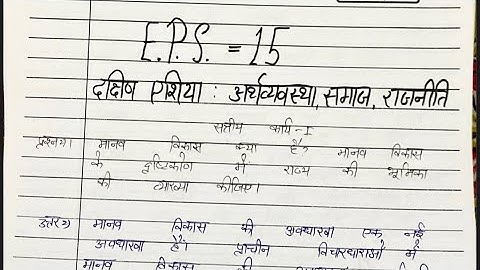 E.P.S. = 15
दक्षिण एशिया : अर्थव्यवस्था, समाज, राजनीति
सत्रीय कार्य - I
प्रश्न 1) मानव विकास क्या है? मानव विकास
के दृष्टिकोण में राज्य की भूमिका
की व्याख्या कीजिए।
उत्तर ⇒ मानव विकास की अवधारणा एक नई
अवधारणा है। प्राचीन विचारधाराओं में
मानव विकास की